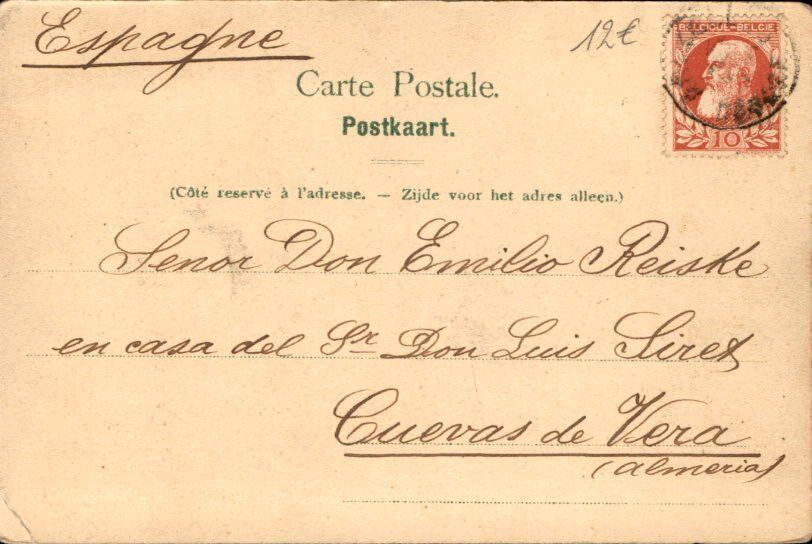 Espagne
12€
BELGIQUE-BELGIE
10
Carte Postale.
Postkaart.
(Côté reservé à l'adresse. — Zijde voor het adres alleen.)
Senor Don Emilio Reiske
en casa del Sr Don Luis Siret
Cuevas de Vera
(almeria)